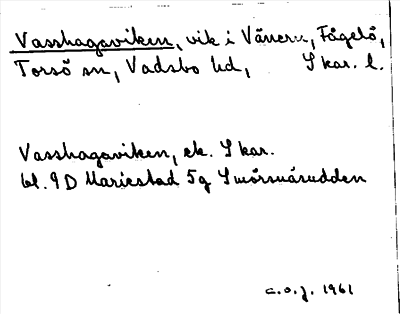 Vasshagaviken, vik i Vänern, Fågelö,
Torsö sn, Vadsbo hd, Skar. l.
Vasshagaviken, ek. Skar.
bl. 9D Mariestad 5g Smörsnäsudden
c.o.j. 1961